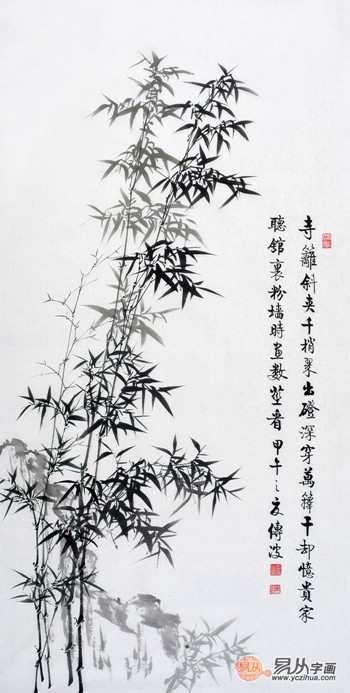 寺籬斜夹千梢翠出磴深穿萬籜干却憶貴家
聽館裏粉墙時畫數莖看甲午之夏傳波
易从
易从字画
www.yczihua.com